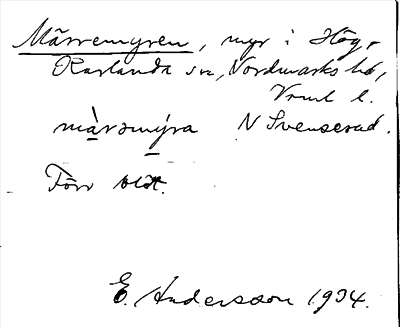 Märremyren, myr i Hög,
Karlanda sn, Nordmarks hd,
Vrml l.
màrəmýra N Svenserud.
Förr slåt.
E. Andersson 1934.